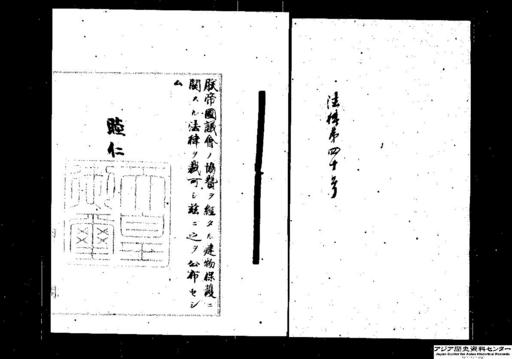 法律第四十号
朕帝國議會ノ協賛ヲ經タル建物保護ニ
関スル法律ヲ裁可シ茲ニ之ヲ公布セシ
ム
睦仁
天皇
御璽
アジア歴史資料センター
Japan Center for Asian Historical Records